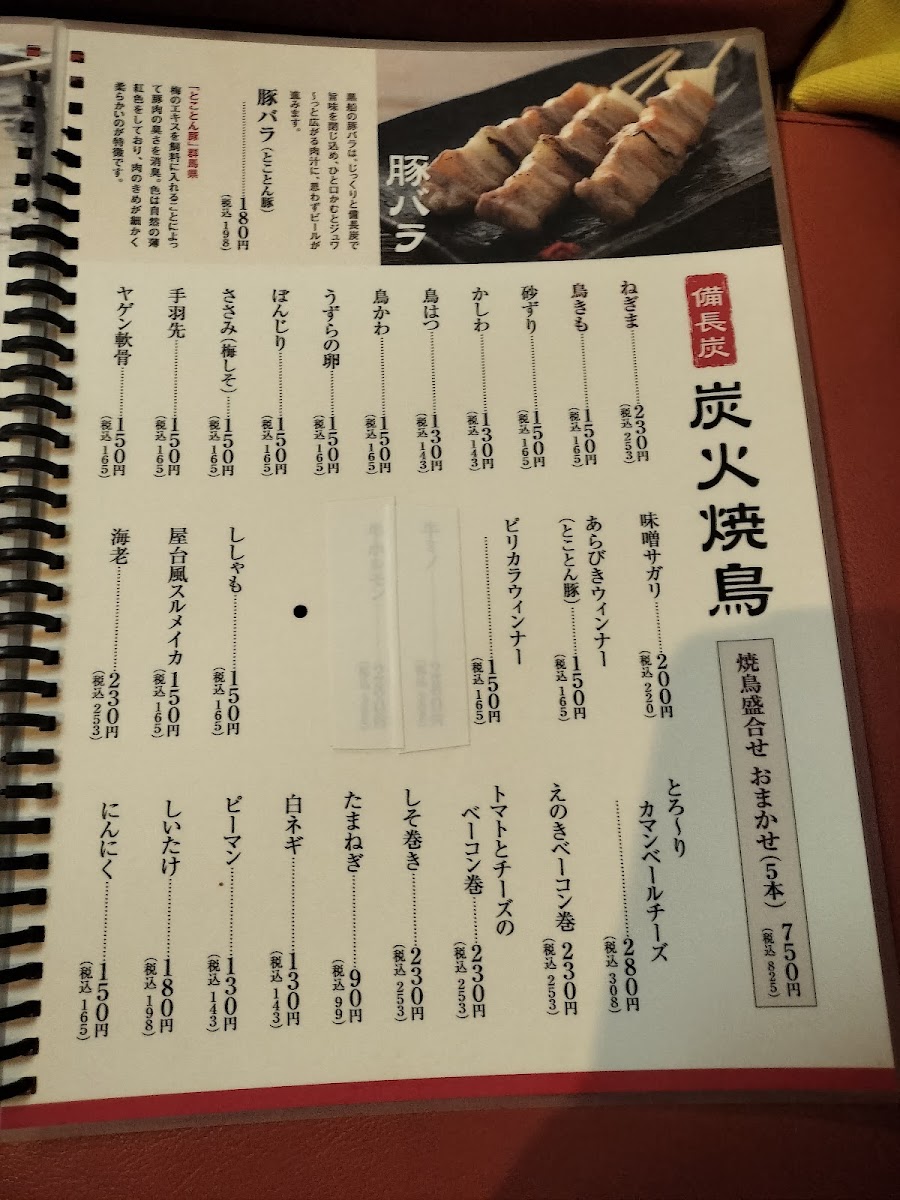 備長炭
炭火焼鳥
焼鳥盛合せ おまかせ(5本) 750円
(税込 825)
豚バラ
黒船の豚バラは、じっくりと備長炭で
旨味を閉じ込め、ひと口かむとジュワ
〜っと広がる肉汁に、思わずビールが
進みます。
豚バラ(とことん豚)
180円
(税込 198)
「とことん豚」群馬県
梅のエキスを飼料に入れることによっ
て豚肉の臭さを消臭。色は自然の薄
紅色をしており、肉のきめが細かく
柔らかいのが特徴です。
ねぎま 230円
(税込 253)
鳥きも 150円
(税込 165)
砂ずり 150円
(税込 165)
かしわ 130円
(税込 143)
鳥はつ 130円
(税込 143)
鳥かわ 150円
(税込 165)
うずらの卵 150円
(税込 165)
ぼんじり 150円
(税込 165)
ささみ(梅しそ) 150円
(税込 165)
手羽先 150円
(税込 165)
ヤゲン軟骨 150円
(税込 165)
味噌サガリ 200円
(税込 220)
あらびきウィンナー
(とことん豚) 150円
(税込 165)
ピリカラウィンナー
150円
(税込 165)
ししゃも 150円
(税込 165)
屋台風スルメイカ 150円
(税込 165)
海老 230円
(税込 253)
とろ〜り
カマンベールチーズ
280円
(税込 308)
えのきベーコン巻 230円
(税込 253)
トマトとチーズの
ベーコン巻 230円
(税込 253)
しそ巻き 230円
(税込 253)
たまねぎ 90円
(税込 99)
白ネギ 130円
(税込 143)
ピーマン 130円
(税込 143)
しいたけ 180円
(税込 198)
にんにく 150円
(税込 165)